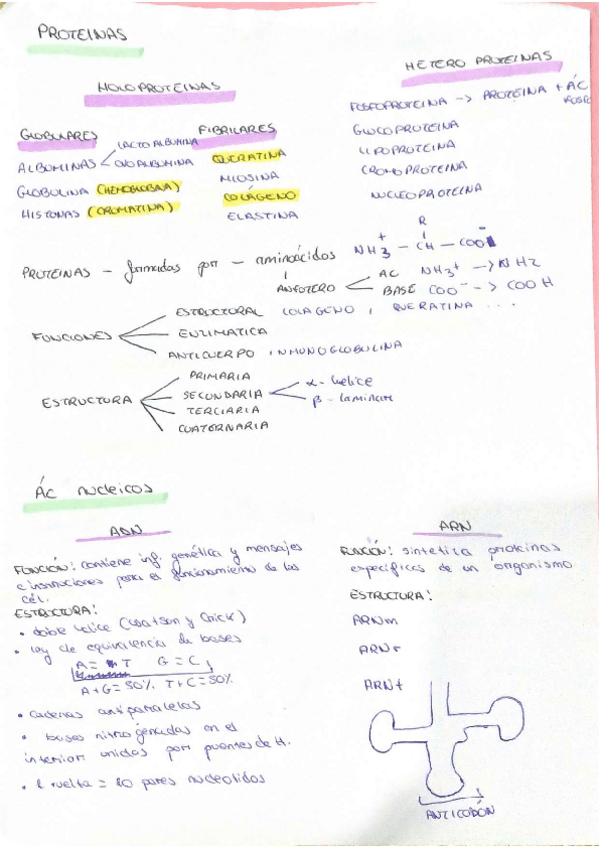 PROTEINAS
HOLOPROTEINAS
HETERO PROTEINAS
GLOBULARES
ALBUMINAS
LACTOALBUMINA
OVOALBUMINA
GLOBULINA (HEMOGLOBINA)
HISTONAS (CROMATINA)
FIBRILARES
QUERATINA
MIOSINA
COLÁGENO
ELASTINA
FOSFOPROTEINA -> PROTEINA + ÁC
FOSFO
GLUCOPROTEINA
LIPOPROTEINA
CROMOPROTEINA
NUCLEOPROTEINA
PROTEINAS - formadas por - aminoácidos
R
NH3+ - CH - COO
ANFOTERO
AC NH3+ -> NH2
BASE COO- -> COOH
FUNCIONES
ESTRUCTURAL COLAGENO, QUERATINA ...
ENZIMATICA
ANTICUERPO INMUNOGLOBULINA
ESTRUCTURA
PRIMARIA
SECUNDARIA
α- helice
β- laminar
TERCIARIA
CUATERNARIA
Ác nucleicos
ADN
FUNCIÓN: contiene inf. genética y mensajes
e instrucciones para el funcionamiento de las
cél.
ESTRUCTURA:
• doble helice (Watson y Crick)
• ley de equivalencia de bases
A = T G = C
A+G = 50% T+C = 50%
• cadenas antiparalelas
• bases nitrogenadas en el
interior unidas por puentes de H.
• 1 vuelta = 10 pares nucleotidos
ARN
FUNCIÓN: sintetiza proteinas
especificas de un organismo
ESTRUCTURA:
ARNm
ARNr
ARNt
ANTICODÓN